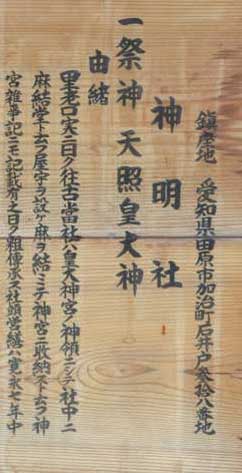 鎮座地　愛知県田原市加治町石井戸参拾八番地
神明社
一祭神　天照皇大神
由緒
里老口実ニ曰ク往古当社ハ皇大神宮ノ神領ニシテ社中ニ
麻結堂ト云フ屋宇ヲ設ケ麻ヲ結ミテ神宮ニ収納スト云フ神
宮雑事記ニモ記載有之曰ク粗傳承ス社頭営繕ハ寛永七年中